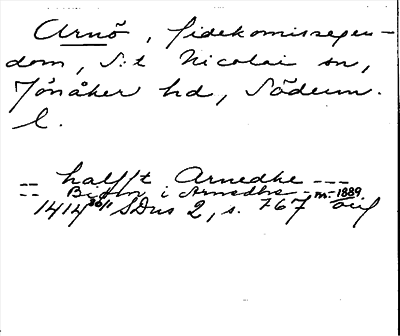 Arnö, fideikomissegen-
dom, S:t Nicolai sn,
Jönåker hd, Söderm.
l.
-- halfft Arnedhe ---
-- i Arnedhe -- m- 1889
1414 30/11 SDns 2, s. 767